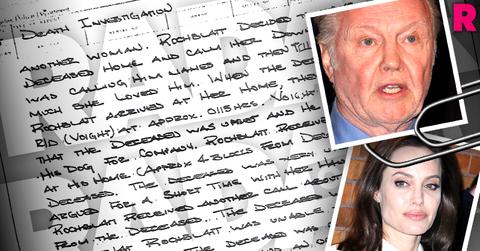 DEATH INVESTIGATION
ANOTHER WOMAN. ROCHBLATT DECIDED
DECEASED HOME AND CALM HER DOWN
WAS CALLING HIM NAMES AND THEN TELL
MUCH SHE LOVED HIM. WHEN THE DE
ROCHBLATT ARRIVED AT HER HOME, THE
RID (VOIGHT) AT APPROX. 0115 HRS. VOIGHT
THAT THE DECEASED WAS UPSET AND HE
HIS DOG FOR COMPANY. ROCHBLATT RECEIVE
AT HIS HOME. (APPROX 4-BLOCKS FROM DECE
DECEASED. THE DECEASED WAS VERY U
ARGUED FOR A SHORT TIME WITH HER HAN
ROCHBLATT RECEIVED ANOTHER CALL ABOUT
FROM THE DECEASED. THE DECEA
THAT ROCHBLATT WAS UNABLE
FROM THE DECEASED WAS
R
RADAR